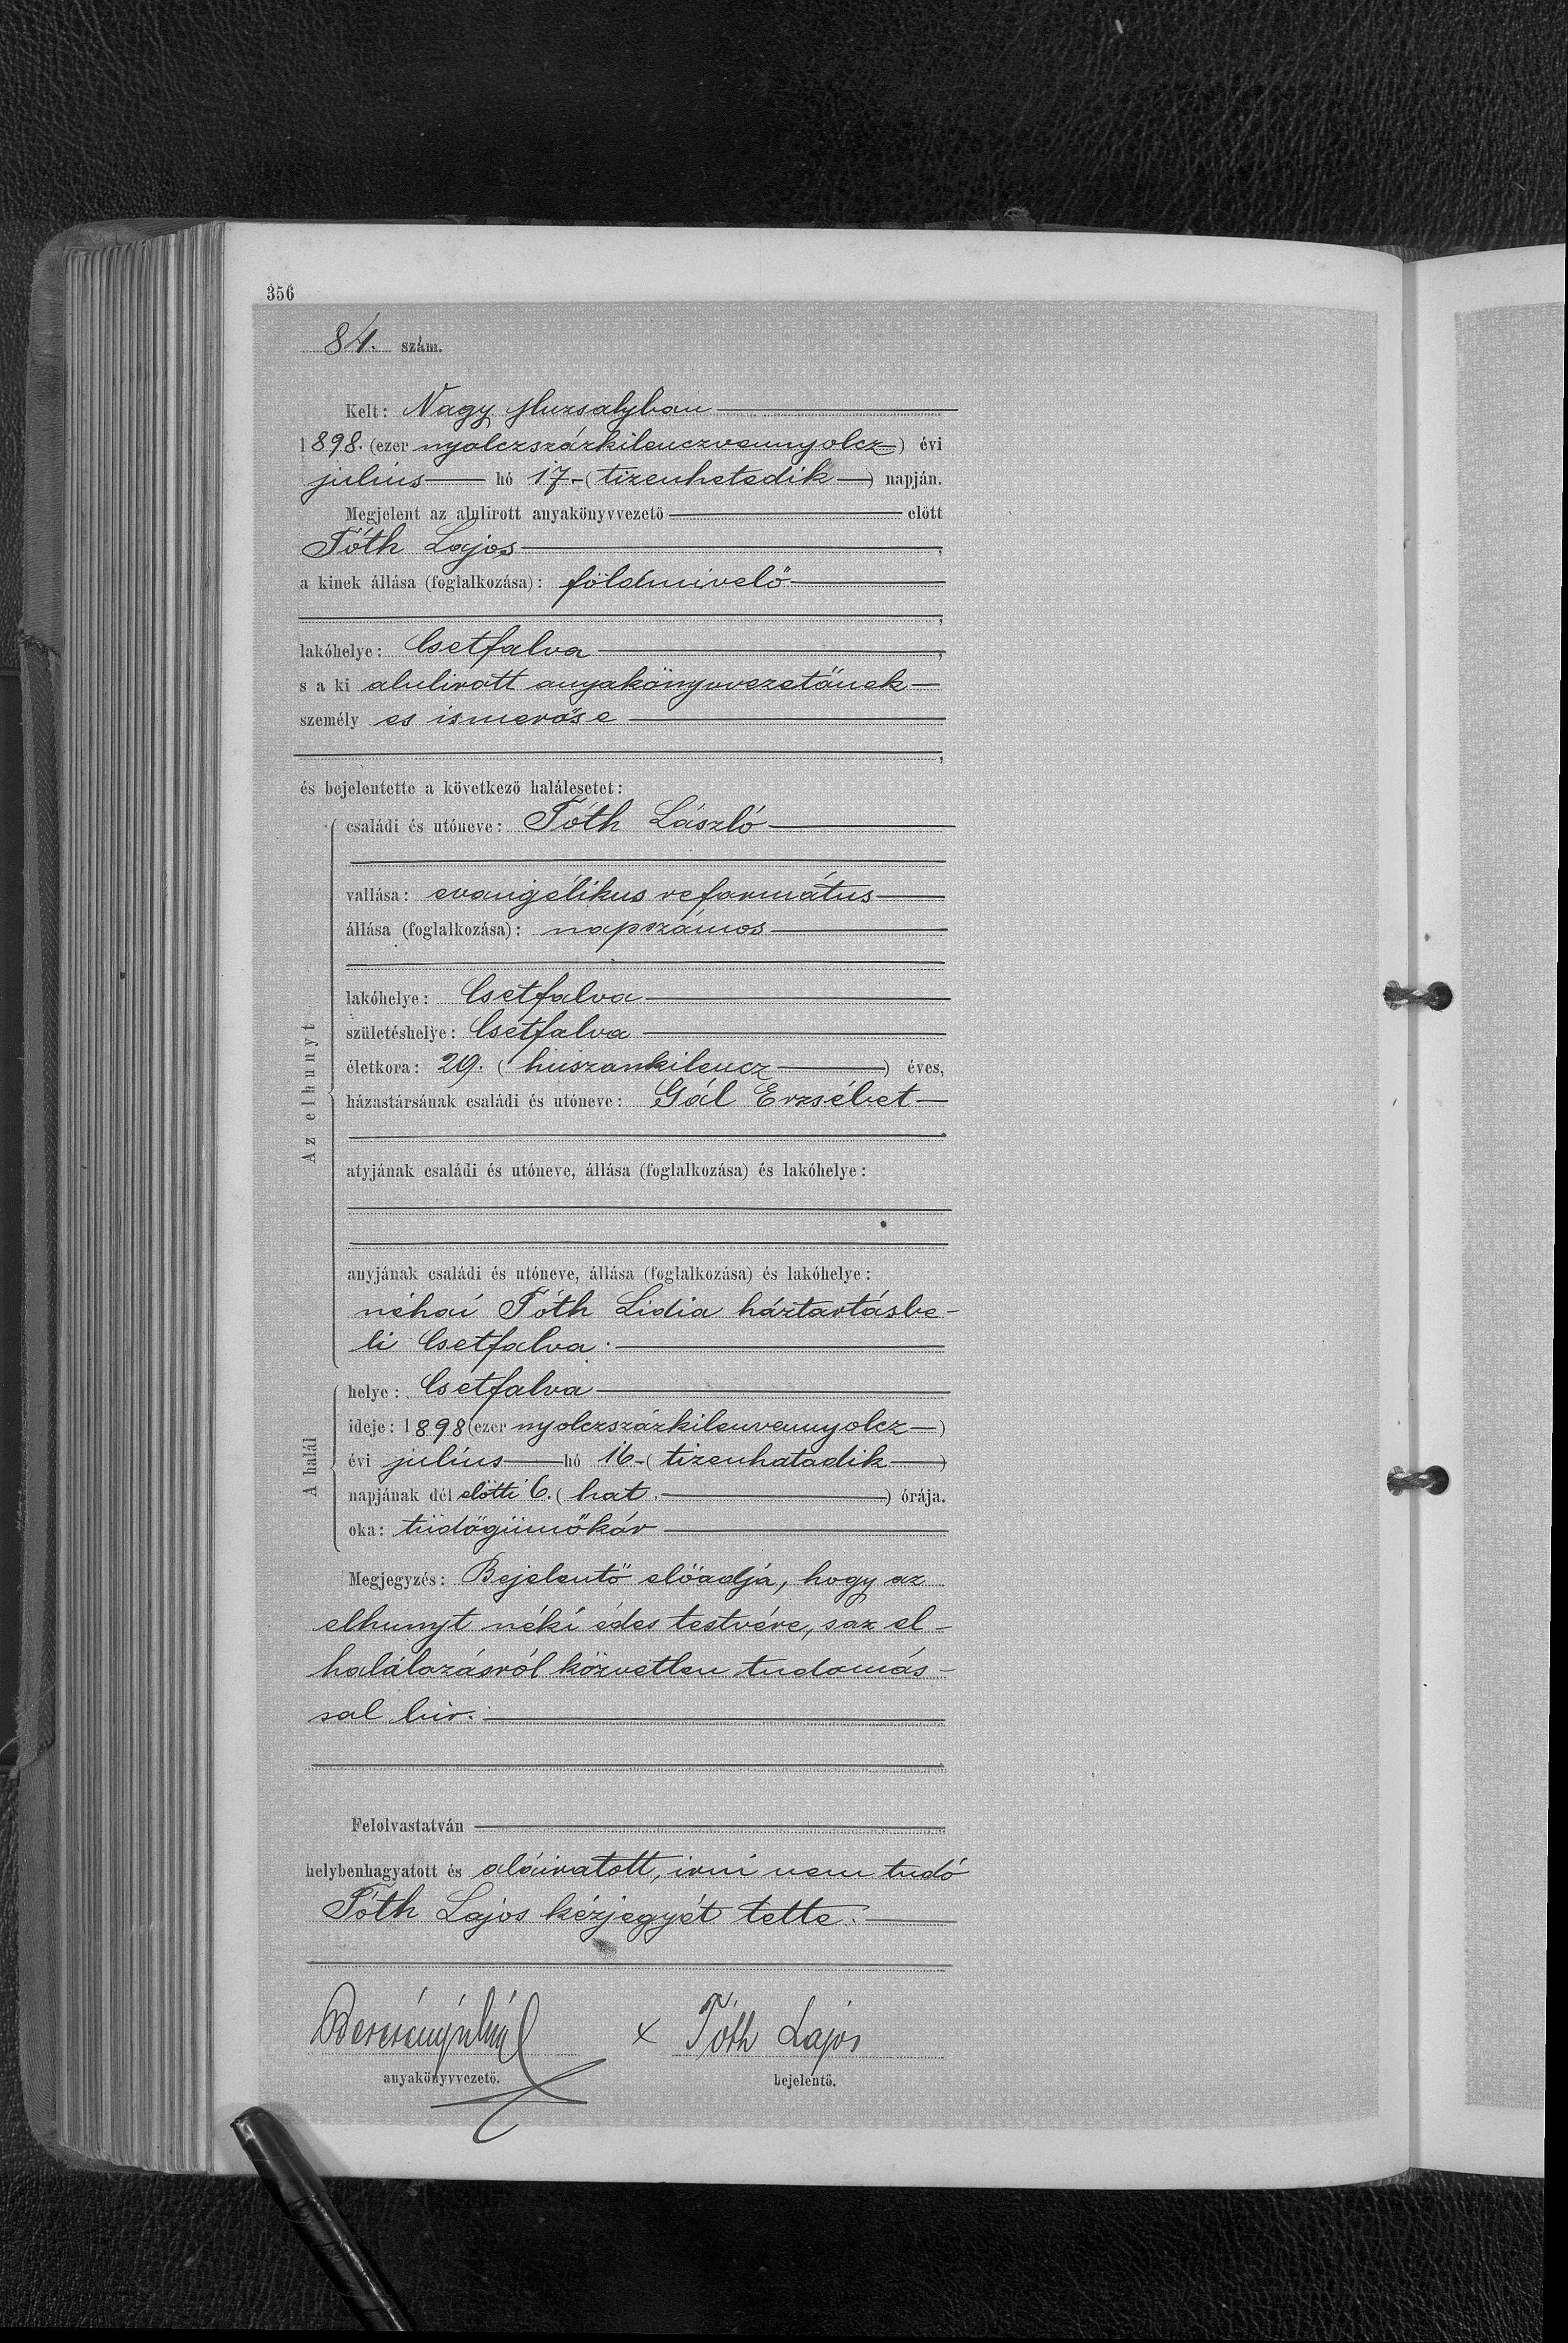 356
84. szám.
Kelt: Nagy Muzsalyban
1898. (ezer nyolczszázkilenczvennyolcz) évi
július hó 17. (tizenhetedik) napján.
Megjelent az alulirott anyakönyvvezető előtt
Tóth Lajos,
a kinek állása (foglalkozása): földmivelő
,
lakóhelye: Csetfalva,
s a ki alulirott anyakönyvvezetőnek
személy es ismerőse
,
és bejelentette a következő halálesetet:
Az elhunyt
családi és utóneve: Tóth László
vallása: evangélikus református
állása (foglalkozása): napszámos
lakóhelye: Csetfalva
születéshelye: Csetfalva
életkora: 29. (húszonkilencz) éves,
házastársának családi és utóneve: Gál Erzsébet
atyjának családi és utóneve, állása (foglalkozása) és lakóhelye:
anyjának családi és utóneve, állása (foglalkozása) és lakóhelye:
néhai Tóth Lidia háztartásbe-
li Csetfalva.
A halál
helye: Csetfalva
ideje: 1898 (ezer nyolczszázkilenvennyolcz)
évi július hó 16. (tizenhatodik)
napjának dél előtti 6. (hat.) órája.
oka: tüdőgümőkór
Megjegyzés: Bejelentő előadja, hogy az
elhunyt néki édes testvére, s az el-
halálozásról közvetlen tudomás-
sal bir.
Felolvastatván
helybenhagyatott és aláiratott, irni nem tudó
Tóth Lajos kézjegyét tette.
x Tóth Lajos
anyakönyvvezető. bejelentő.